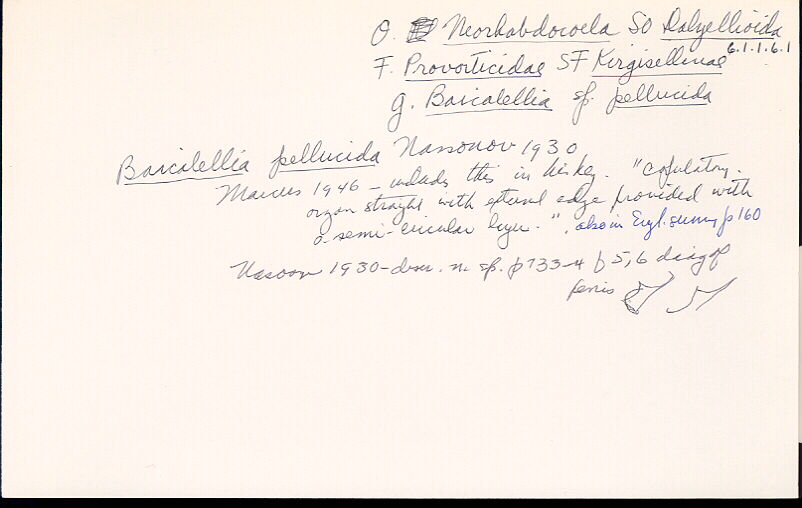 O. Neorhabdocoela SO Dalyellioida
6.1.1.6.1
F. Provorticidae SF Kirgisellinae
g. Baicalellia sp. pellucida
Baicalellia pellucida Nassonov 1930
Marcus 1946 – includes this in his key. "copulatory
organ straight with external edge provided with
a semi-circular layer.", also in Engl. summ p 160
Nasonov 1930 – descr. n. sp. p 733-4 f 5,6 diag of
penis